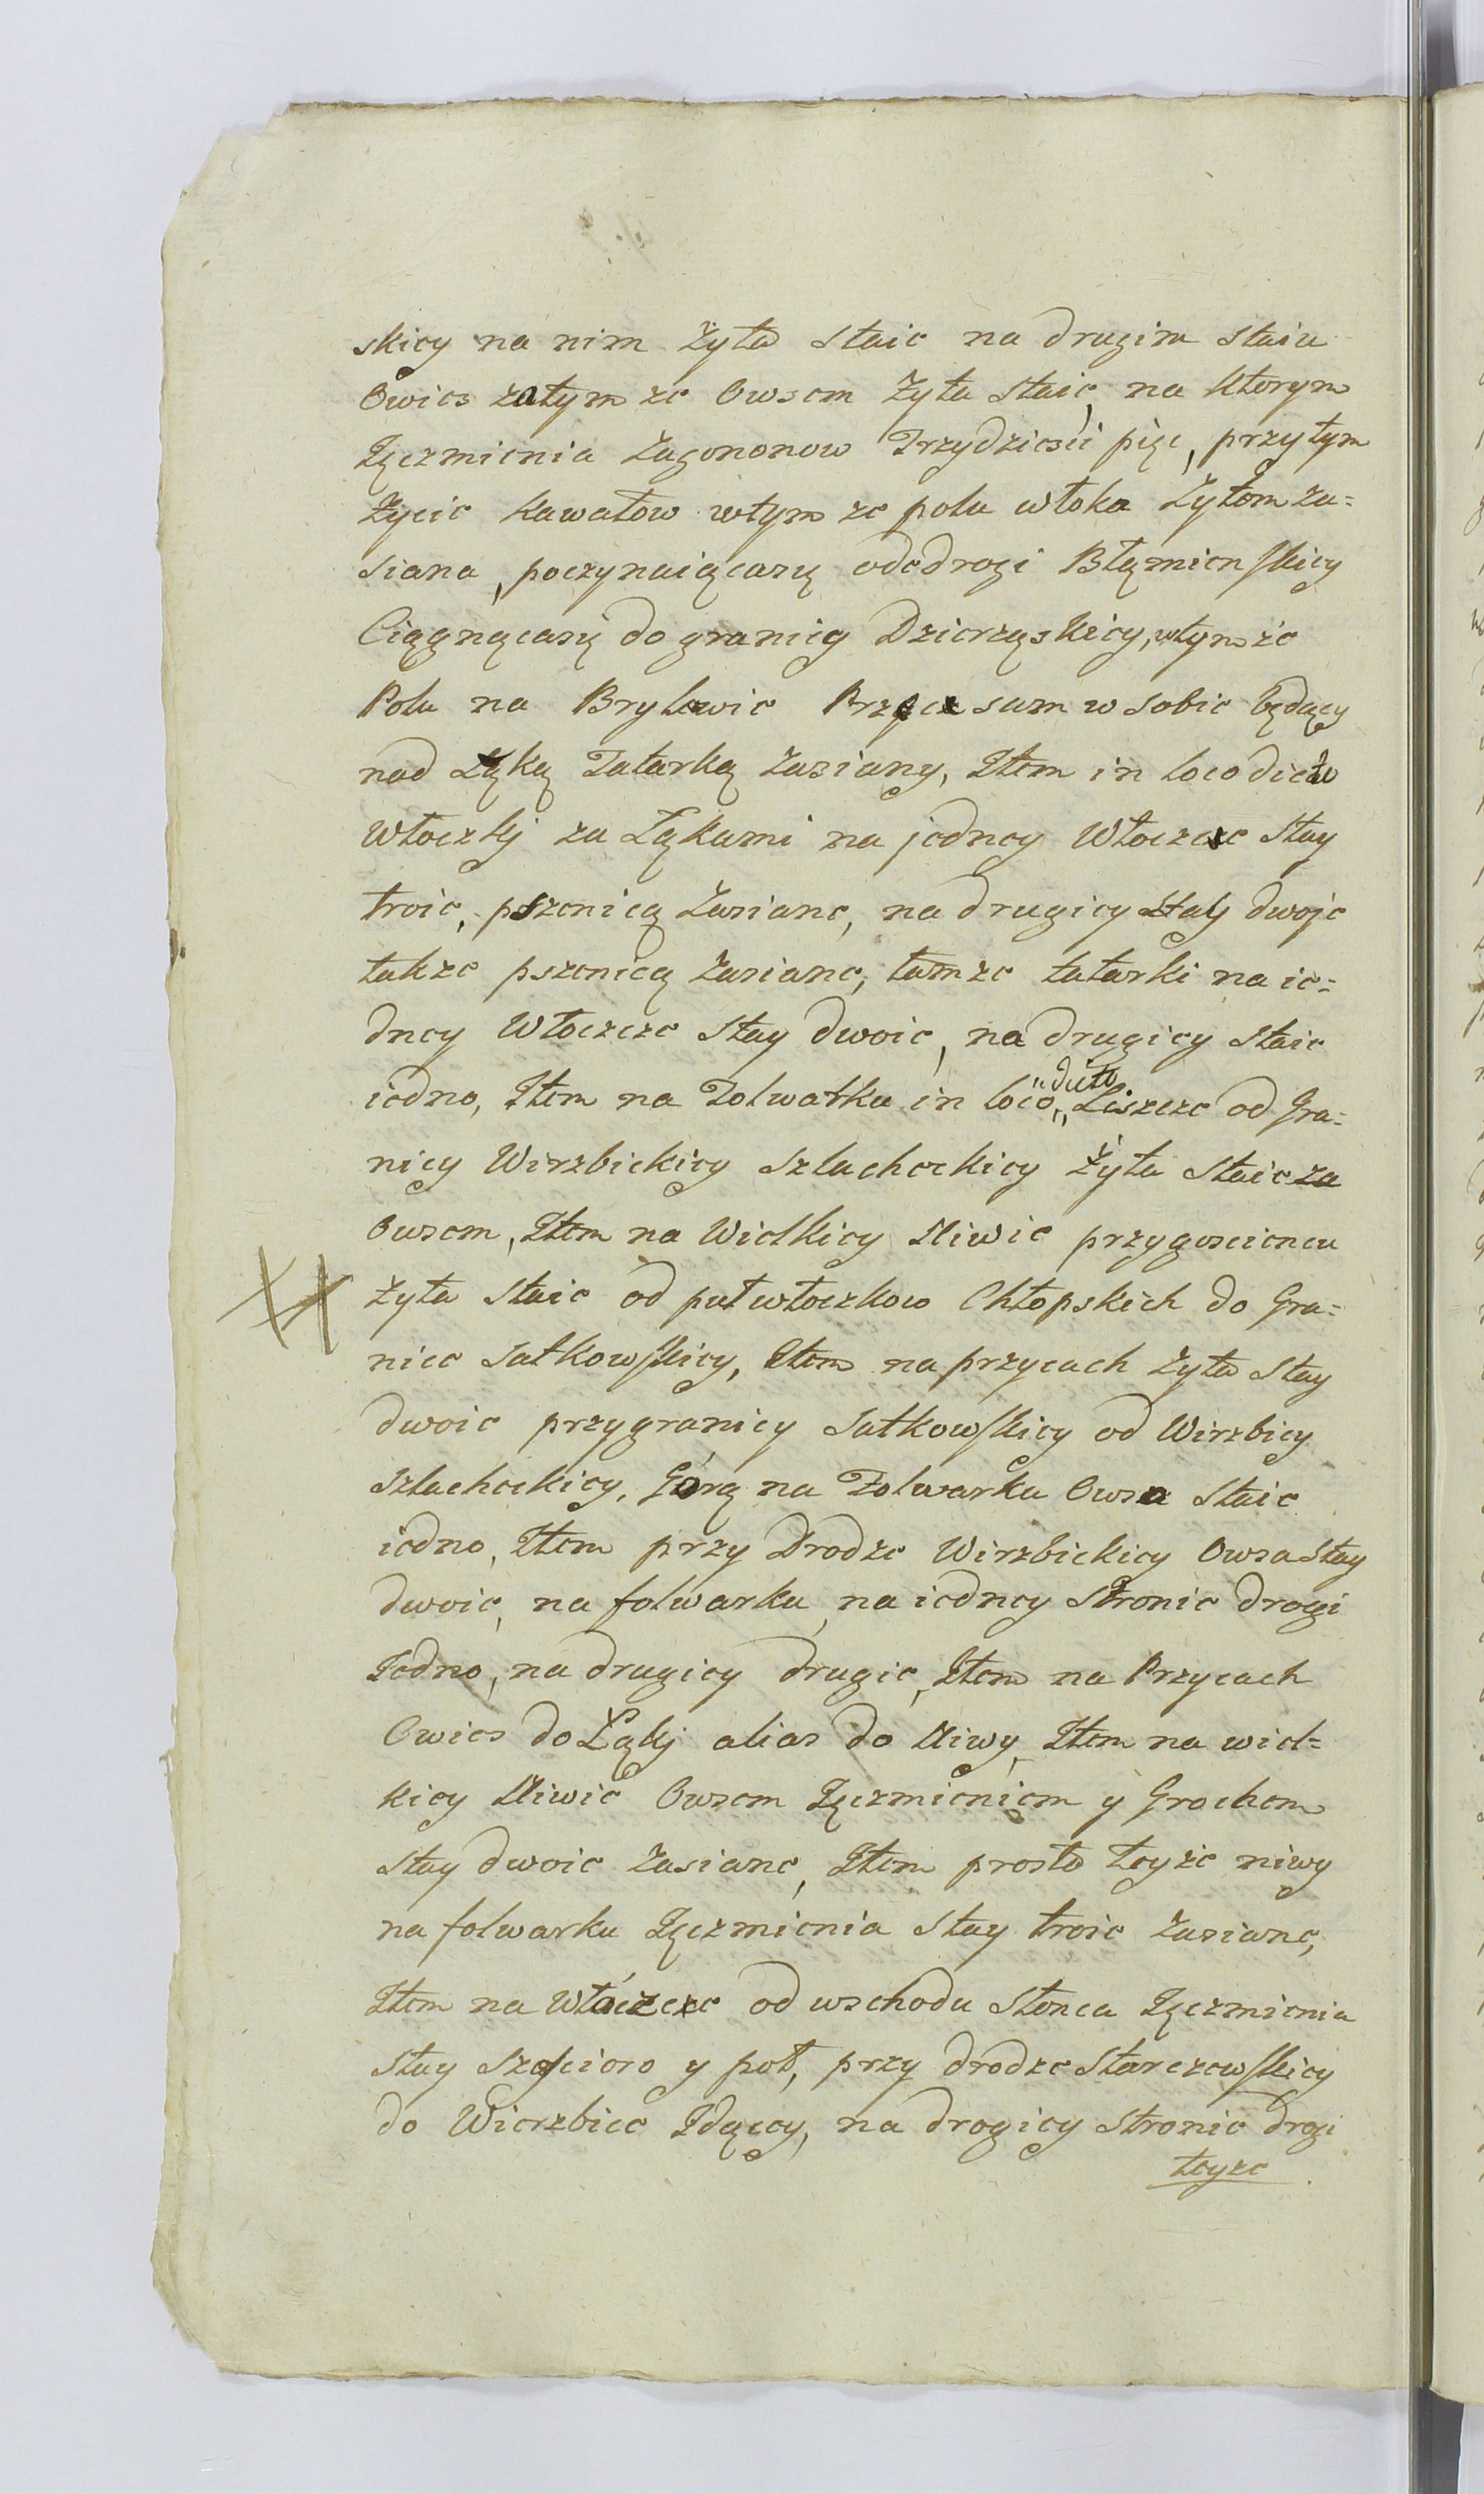 skiey na nim Żyta Staie na drugim staiu
Owies zatym ze Owsem Żyta Staie, na ktorym
Jęczmienia Zagononow Trzydziesći pięc, przytym
Życie Kawałow wtym ze polu włoka Żytom za=
siana, poczynaiącasię odedrogi Błęmienskiey
Ciągnącasię do granicy Dzierzęskiey, wtymże
Polu na Brylewie Przez sum w sobie będący
nad Łąką Tatarką zasiany, Item in loco dicto
Włoczkj za Łąkami na jedney Włoczce Stay
troie, pszenicą Zasiane, na drugiey Staj dwoje
takze pszenicą Zasiane, tamze tatarki na ie=
dney Włoczcze Stay dwoie, na drugiey Staie
iedno, Item na Folwarku in loco „dicto„ Liszcze od Gra=
nicy Wirzbickiey Szlacheckiey Żyta Staie za
Owsem, Item na Wielkiey Niwie przygosciencu
Żyta Staie od pułwłoczkow Chłopskich do Gra=
nice Jatkowskiey, Item na przycach żyta Stay
dwoie przygranicy Jatkowskiey od Wirzbicy
Szlacheckiey. Górą na Folwarku Owsa Staie
iedno, Item przy Drodze Wirzbickiey Owsa Stay
dwoie, na folwarku, na iedney Stronie drogi
Jedno, na drugiey drugie, Item na Przycach
Owies do Łąkj alias do Niwy, Item na wiel=
kiey Niwie Owsem Jęczmieniem y Grochem
Stay dwoie Zasiane, Item prosto teyże niwy
na folwarku Jęczmienia Stay troie Zasiane,
Item na Włóczcze od wschodu Słonca Jęczmienia
Stay Szescioro y puł, przy drodze Starczewskiey
do Wierzbice Jdącey, na drogiey Stronie drogi
teyze